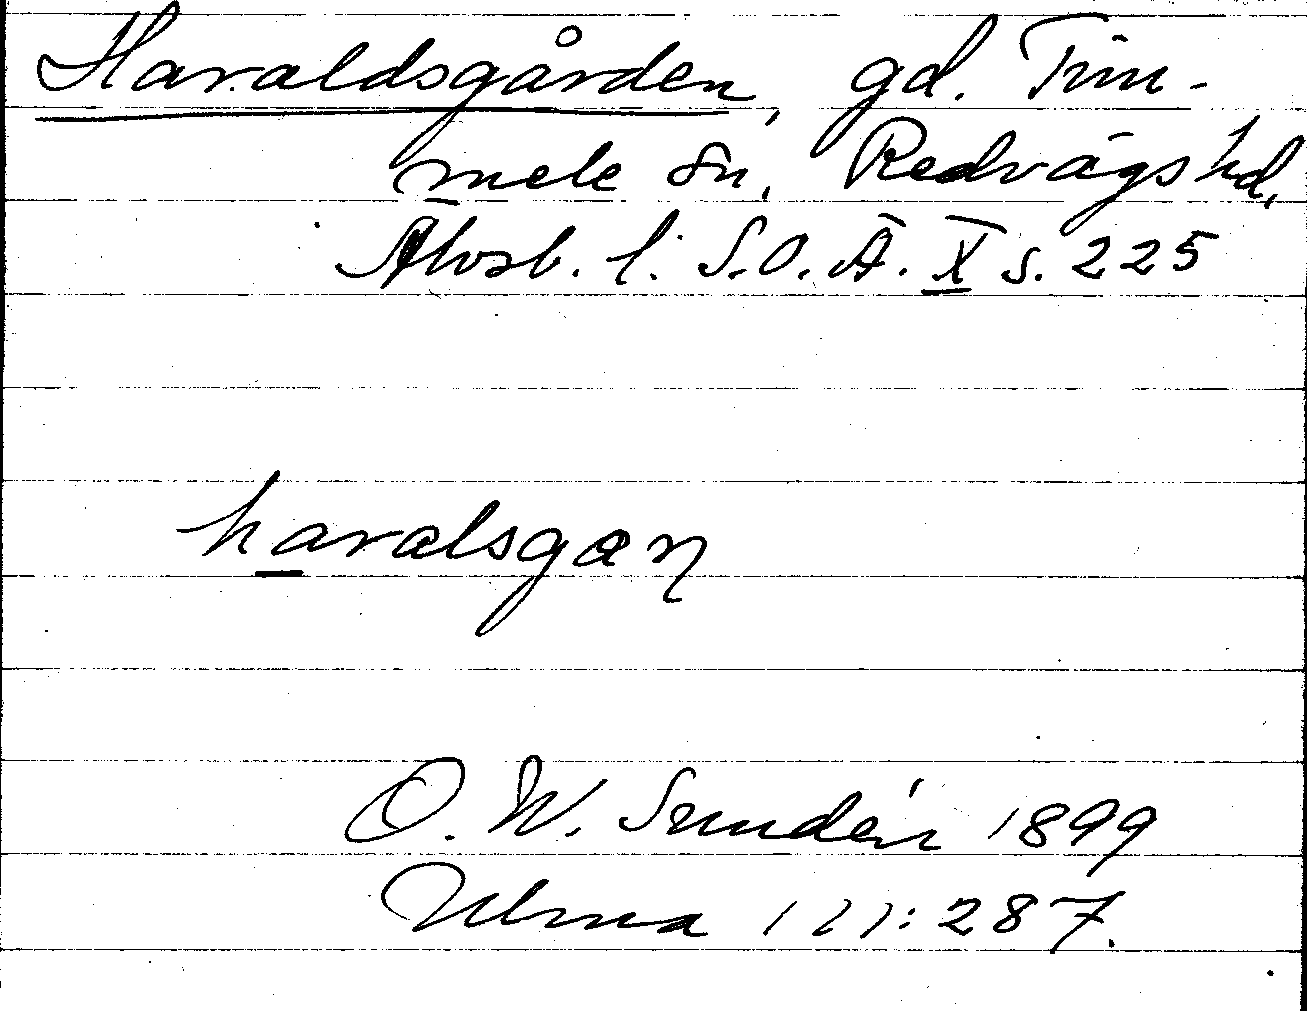 Haraldsgården, gd. Tim-
mele sn, Redvägs hd,
Älvsb. l. S.O.Ä. X s. 225
haralsgan
O. W. Sundén 1899
Ulma 111:287.